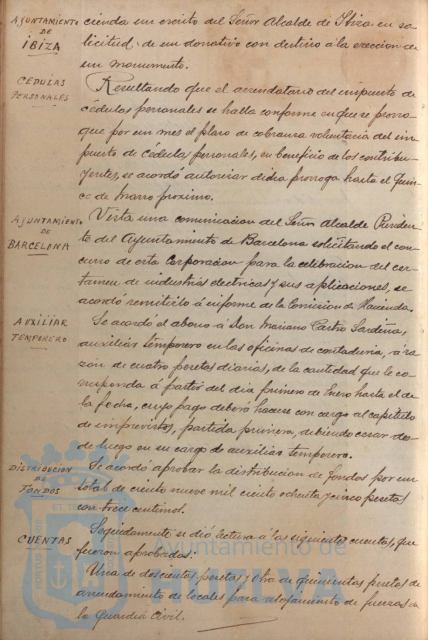 AYUNTAMIENTO
DE
IBIZA
cienda un escrito del Señor Alcalde de Ibiza en so-
licitud de un donativo con destino á la ereccion de
un monumento.
CEDULAS
PERSONALES
Resultando que el arrendatario del impuesto de
cédulas personales se halla conforme en que se prorro-
gue por un mes el plazo de cobranza voluntaria del im-
puesto de Cédulas personales, en beneficio de los contribu-
yentes, se acordó autorizar dicha prorroga hasta el quin-
ce de Marzo proximo.
AYUNTAMIENTO
DE
BARCELONA
Vista una comunicacion del Señor Alcalde Presiden-
te del Ayuntamiento de Barcelona solicitando el con-
curso de esta Corporacion para la celebracion del cer-
tamen de industrias electricas y sus aplicaciones, se
acordó remitirlo á informe de la Comision de Hacienda.
AUXILIAR
TEMPORERO
Se acordó el abono á Don Mariano Castro Sardina,
auxiliar temporero en las oficinas de contaduria, á ra-
zón de cuatro pesetas diarias, de la cantidad que le co-
rresponda á partir del dia primero de Enero hasta el de
la fecha, cuyo pago deberá hacerse con cargo al capitulo
de imprevistos, partida primera, debiendo cesar des-
de luego en su cargo de auxiliar temporero.
DISTRIBUCION
DE
FONDOS
Se acordó aprobar la distribucion de fondos por un
total de ciento nueve mil ciento ochenta y cinco pesetas
con trece centimos.
CUENTAS
Seguidamente se dió lectura á las siguientes cuentas, que
fueron aprobadas:
Una de doscientas pesetas y otra de quinientas pesetas de
arrendamiento de locales para alojamiento de fuerzas de
la Guardia Civil.
Ayuntamiento de
HUELVA